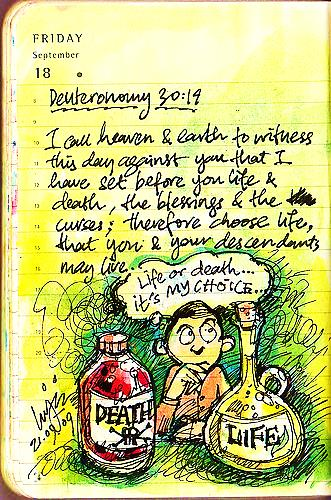 FRIDAY
September
18
Deuteronomy 30:19
I call heaven & earth to witness
this day against you that I
have set before you life &
death, the blessings & the
curses; therefore choose life,
that you & your descendants
may live.
Life or death...
it's MY CHOICE...
DEATH
LIFE
8
9
10
11
12
13
14
15
16
17
20